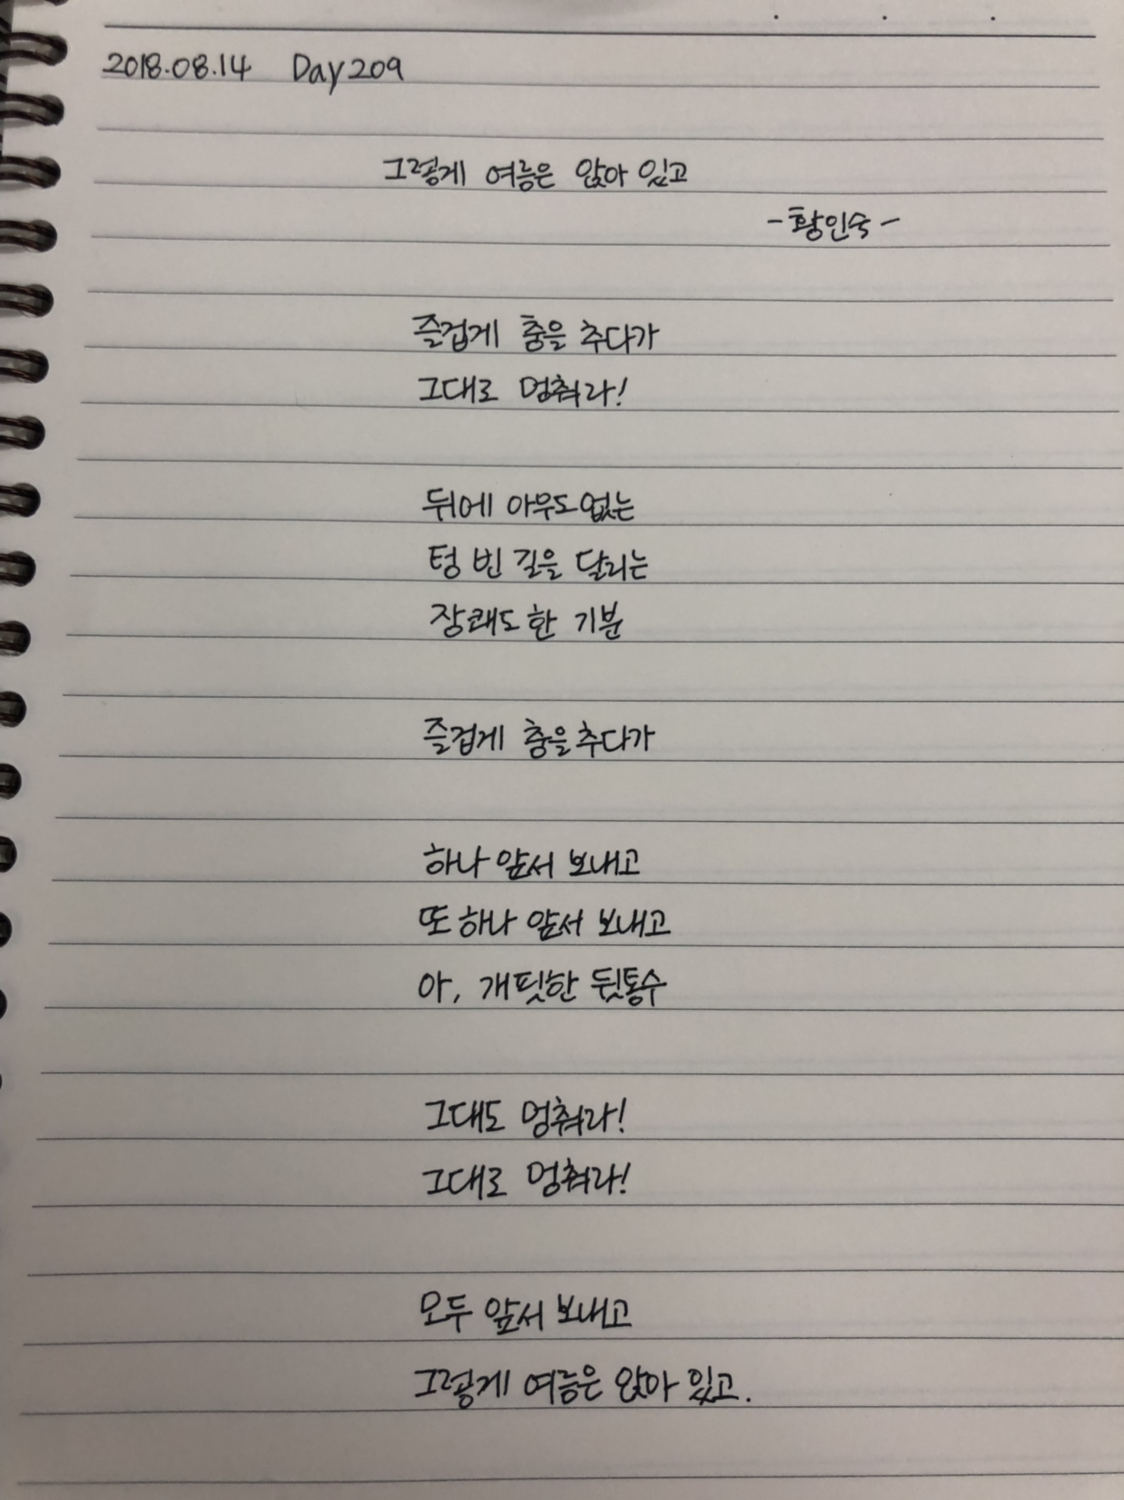 2018.08.14 Day209
그렇게 여름은 앉아 있고
-황인숙-
즐겁게 춤을 추다가
그대로 멈춰라!
뒤에 아무도 없는
텅 빈 길을 달리는
장쾌도 한 기분
즐겁게 춤을 추다가
하나 앞서 보내고
또 하나 앞서 보내고
아, 개핏한 뒷통수
그대도 멈춰라!
그대로 멈춰라!
모두 앞서 보내고
그렇게 여름은 앉아 있고.